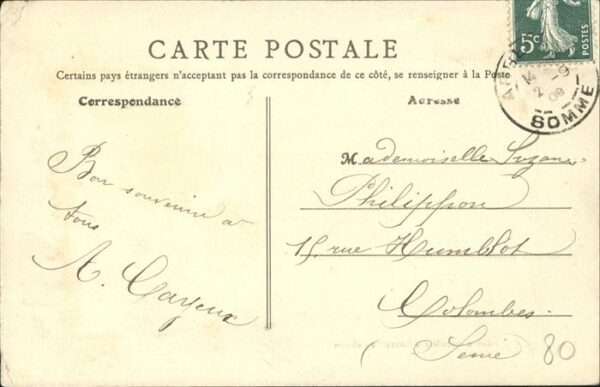 CARTE POSTALE
Certains pays étrangers n'acceptant pas la correspondance de ce côté, se renseigner à la Poste
Correspondance
Adresse
5c
POSTES
14
2-9
09
SOMME
Bon souvenir à
tous
A. Cayeux
Mademoiselle Suzanne
Philippon
15, rue Humblot
Colombes.
(Seine
80